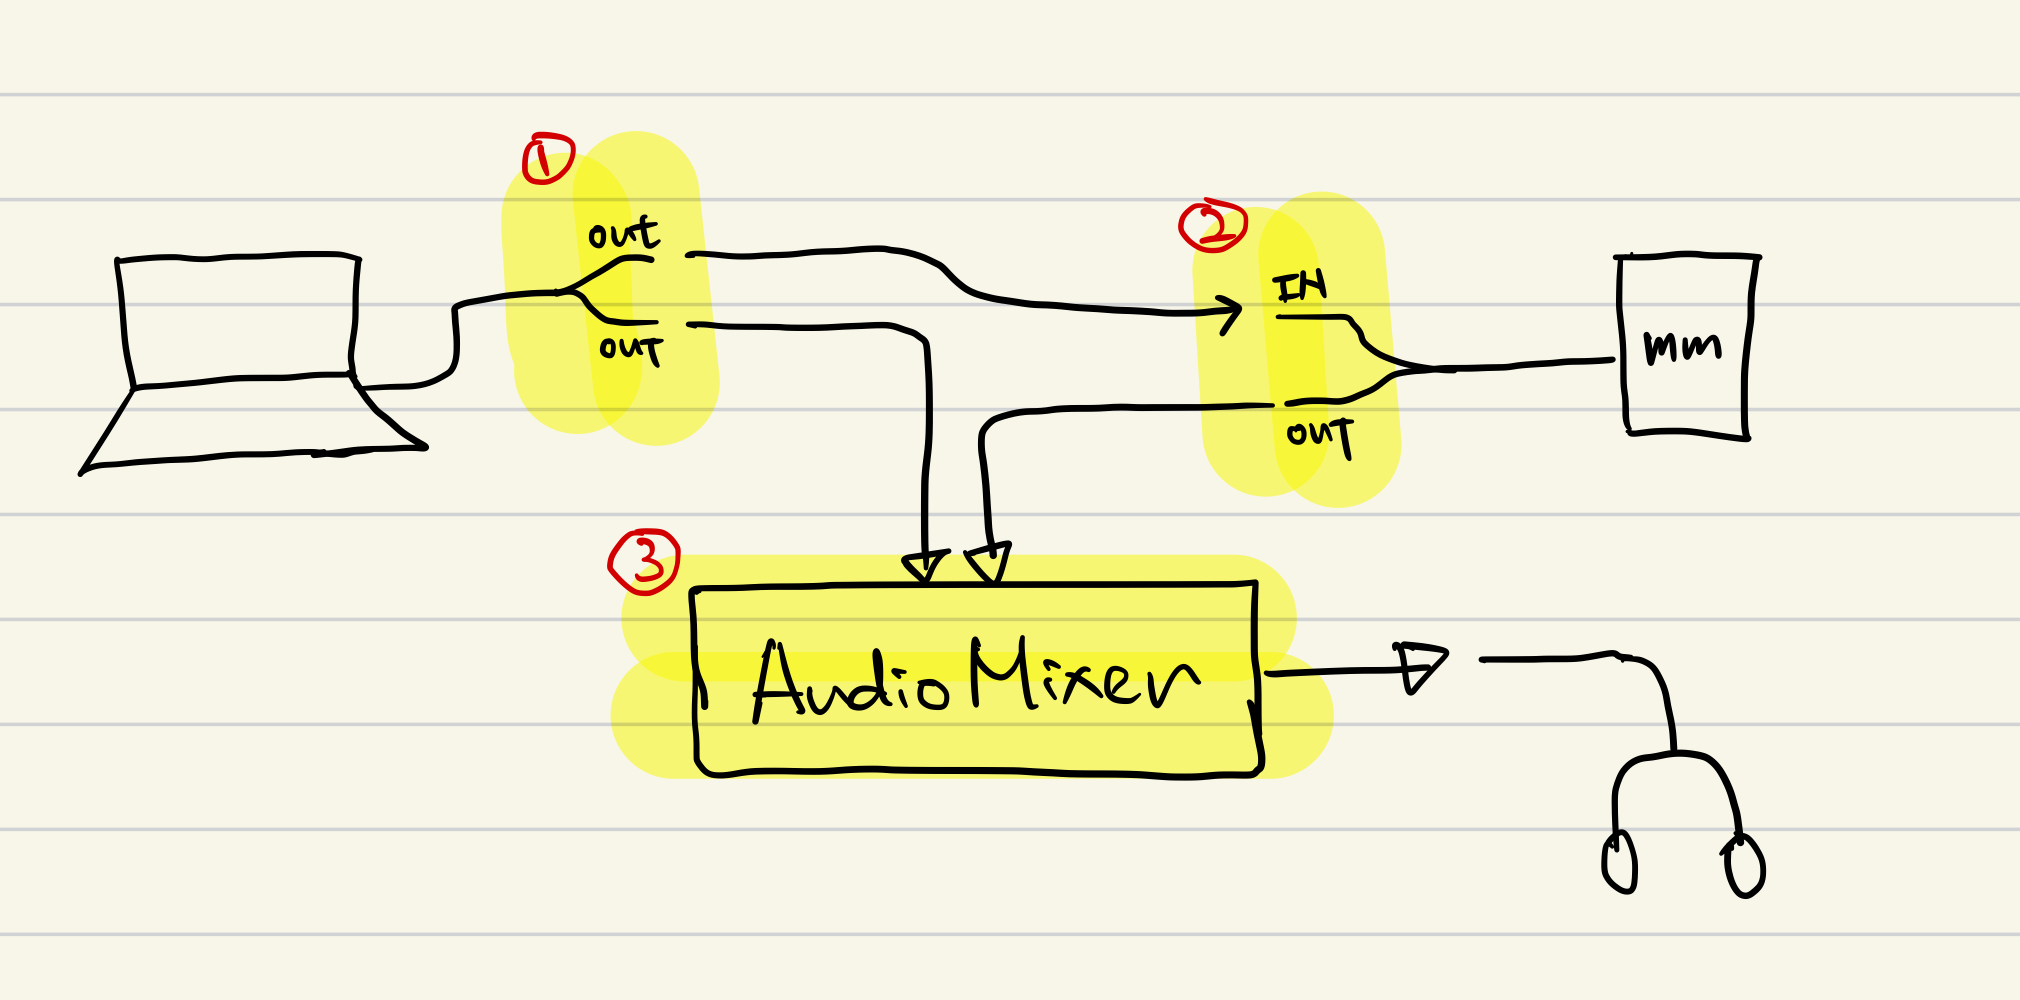 1
out
out
2
IN
OUT
mm
3
Audio Mixer